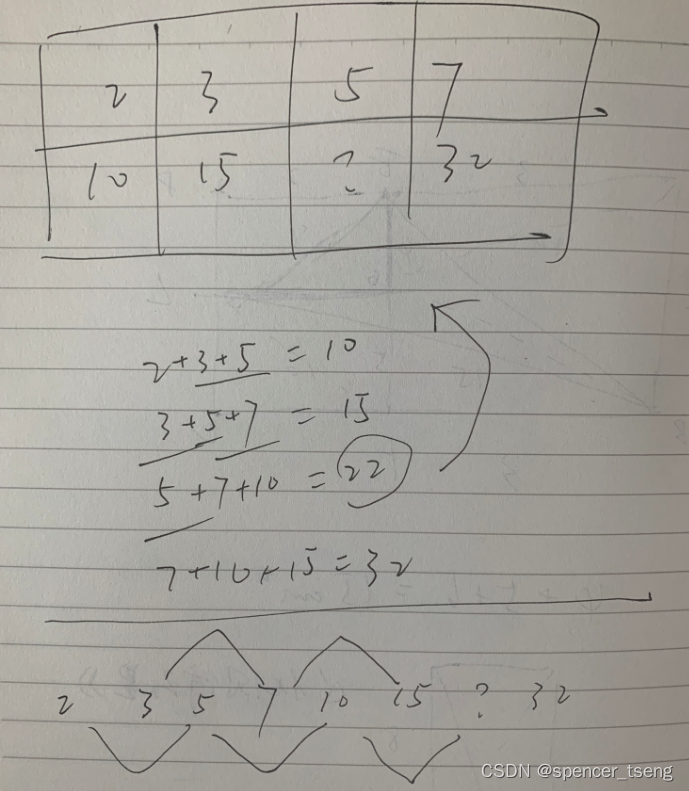 2 3 5 7
10 15 ? 32
2+3+5 = 10
3+5+7 = 15
5+7+10 = 22
7+10+15=32
2 3 5 7 10 15 ? 32
CSDN @spencer_tseng